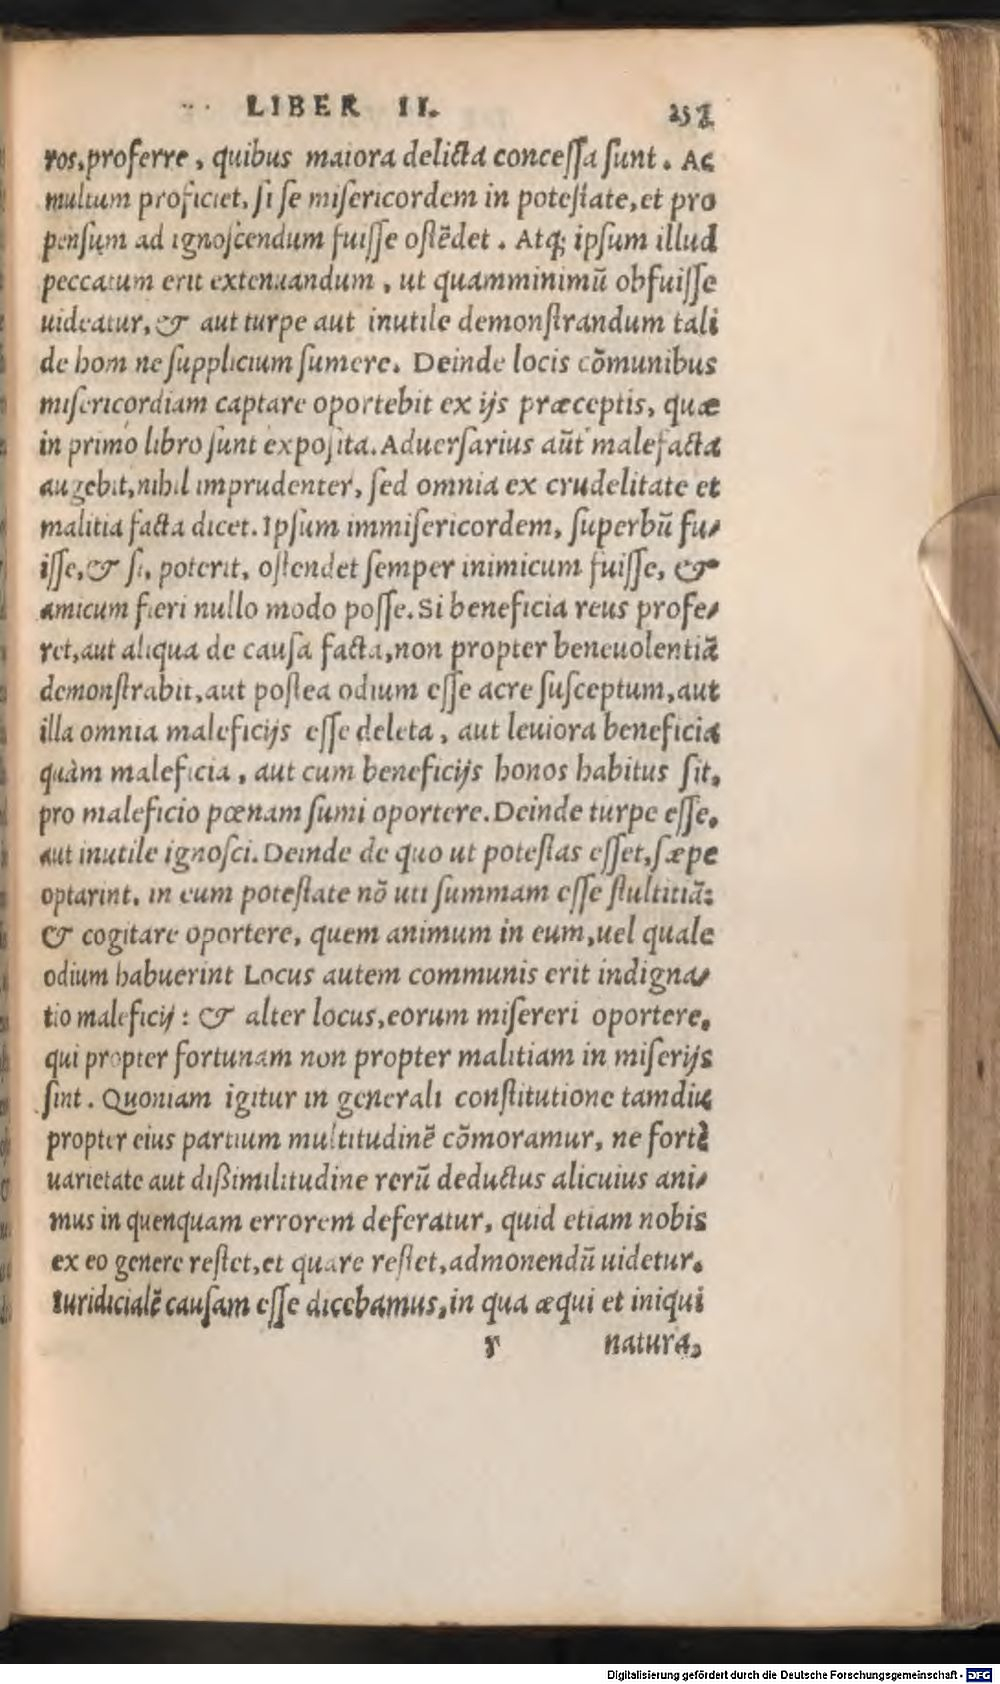 LIBER II. 257
ros, proferre, quibus maiora delicta concessa sunt. Ac
multum proficiet, si se misericordem in potestate, et pro
pensum ad ignoscendum fuisse ostẽdet. Atq; ipsum illud
peccatum erit extenuandum, ut quamminimũ obfuisse
uideatur, & aut turpe aut inutile demonstrandum tali
de hom ne supplicium sumere. Deinde locis cõmunibus
misericordiam captare oportebit ex ijs præceptis, quæ
in primo libro sunt exposita. Aduersarius aũt malefacta
augebit, nihil imprudenter, sed omnia ex crudelitate et
malitia facta dicet. Ipsum immisericordem, superbũ fu-
isse, & si, poterit, ostendet semper inimicum fuisse, &
amicum fieri nullo modo posse. Si beneficia reus profe-
ret, aut aliqua de causa facta, non propter beneuolentiã
demonstrabit, aut postea odium esse acre susceptum, aut
illa omnia maleficijs esse deleta, aut leuiora beneficia
quàm maleficia, aut cum beneficijs honos habitus sit,
pro maleficio pœnam sumi oportere. Deinde turpe esse,
aut inutile ignosci. Deinde de quo ut potestas esset, sæpe
optarint, in eum potestate nõ uti summam esse stultitiã:
& cogitare oportere, quem animum in eum, uel quale
odium habuerint Locus autem communis erit indigna-
tio maleficij: & alter locus, eorum misereri oportere,
qui propter fortunam non propter malitiam in miserijs
sint. Quoniam igitur in generali constitutione tamdiu
propter eius partium multitudinẽ cõmoramur, ne fortè
uarietate aut dißimilitudine rerũ deductus alicuius ani-
mus in quenquam errorem deferatur, quid etiam nobis
ex eo genere restet, et quare restet, admonendũ uidetur.
Iuridicialẽ causam esse dicebamus, in qua æqui et iniqui
r natura,
Digitalisierung gefördert durch die Deutsche Forschungsgemeinschaft - DFG